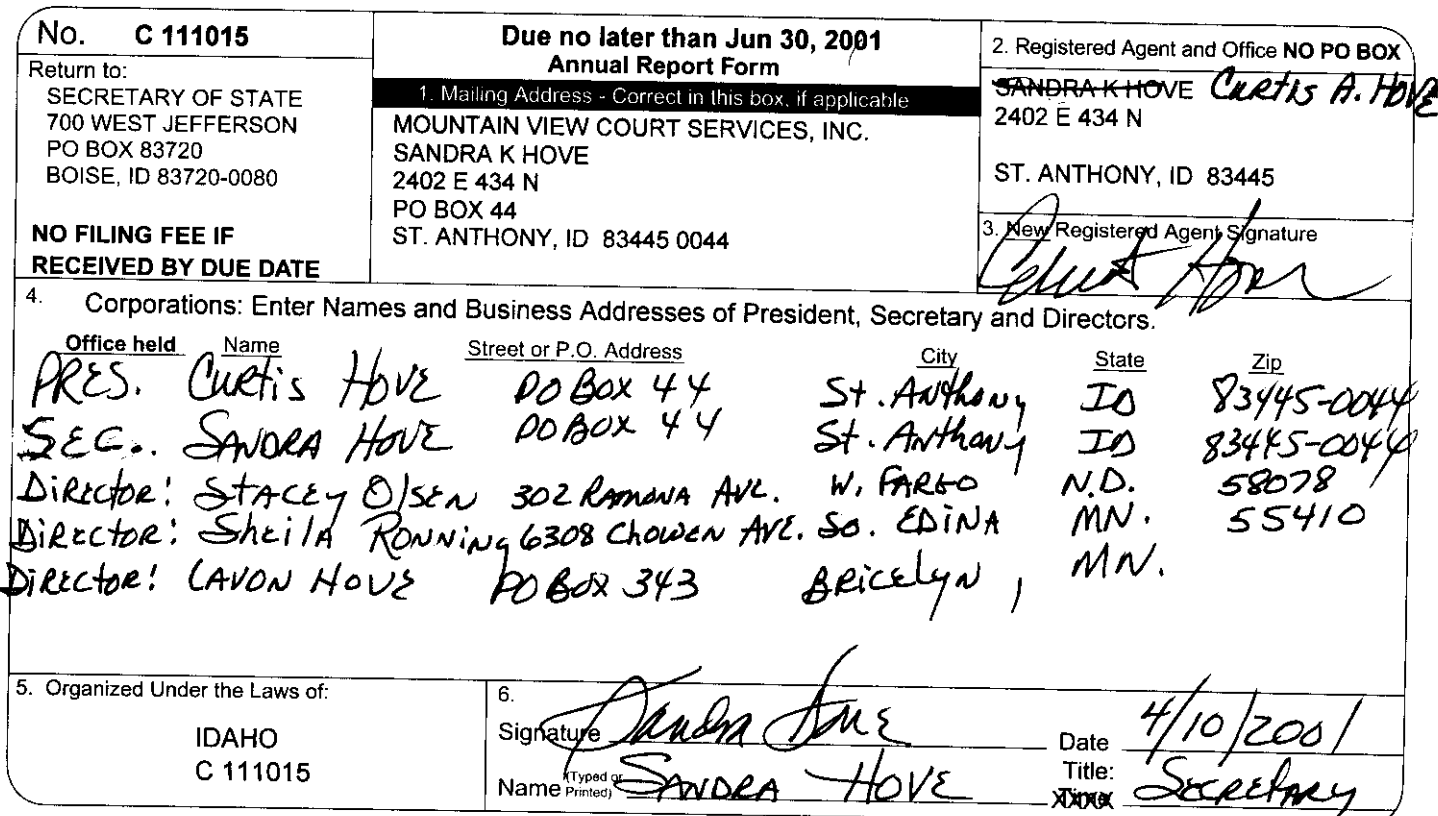 No. C 111015
Return to:
SECRETARY OF STATE
700 WEST JEFFERSON
PO BOX 83720
BOISE, ID 83720-0080
NO FILING FEE IF
RECEIVED BY DUE DATE
Due no later than Jun 30, 2001
Annual Report Form
1. Mailing Address - Correct in this box, if applicable
MOUNTAIN VIEW COURT SERVICES, INC.
SANDRA K HOVE
2402 E 434 N
PO BOX 44
ST. ANTHONY, ID 83445 0044
2. Registered Agent and Office NO PO BOX
SANDRA K HOVE Curtis A. HOVE
2402 E 434 N
ST. ANTHONY, ID 83445
3. New Registered Agent Signature
Curtis Hove
4. Corporations: Enter Names and Business Addresses of President, Secretary and Directors.
Office held Name Street or P.O. Address City State Zip
PRES. Curtis HOVE PO BOX 44 St. Anthony ID 83445-0044
SEC. SANDRA HOVE PO BOX 44 St. Anthony ID 83445-0044
Director: STACEY OlSEN 302 RAMONA AVE. W. FARGO N.D. 58078
Director: Sheila RONNING 6308 Chowen AVE. So. EDINA MN. 55410
Director: LAVON HOVE PO BOX 343 BRICELYN, MN.
5. Organized Under the Laws of:
IDAHO
C 111015
6.
Signature Sandra Hove Date 4/10/2001
Name (Typed or Printed) SANDRA HOVE Title: Secretary